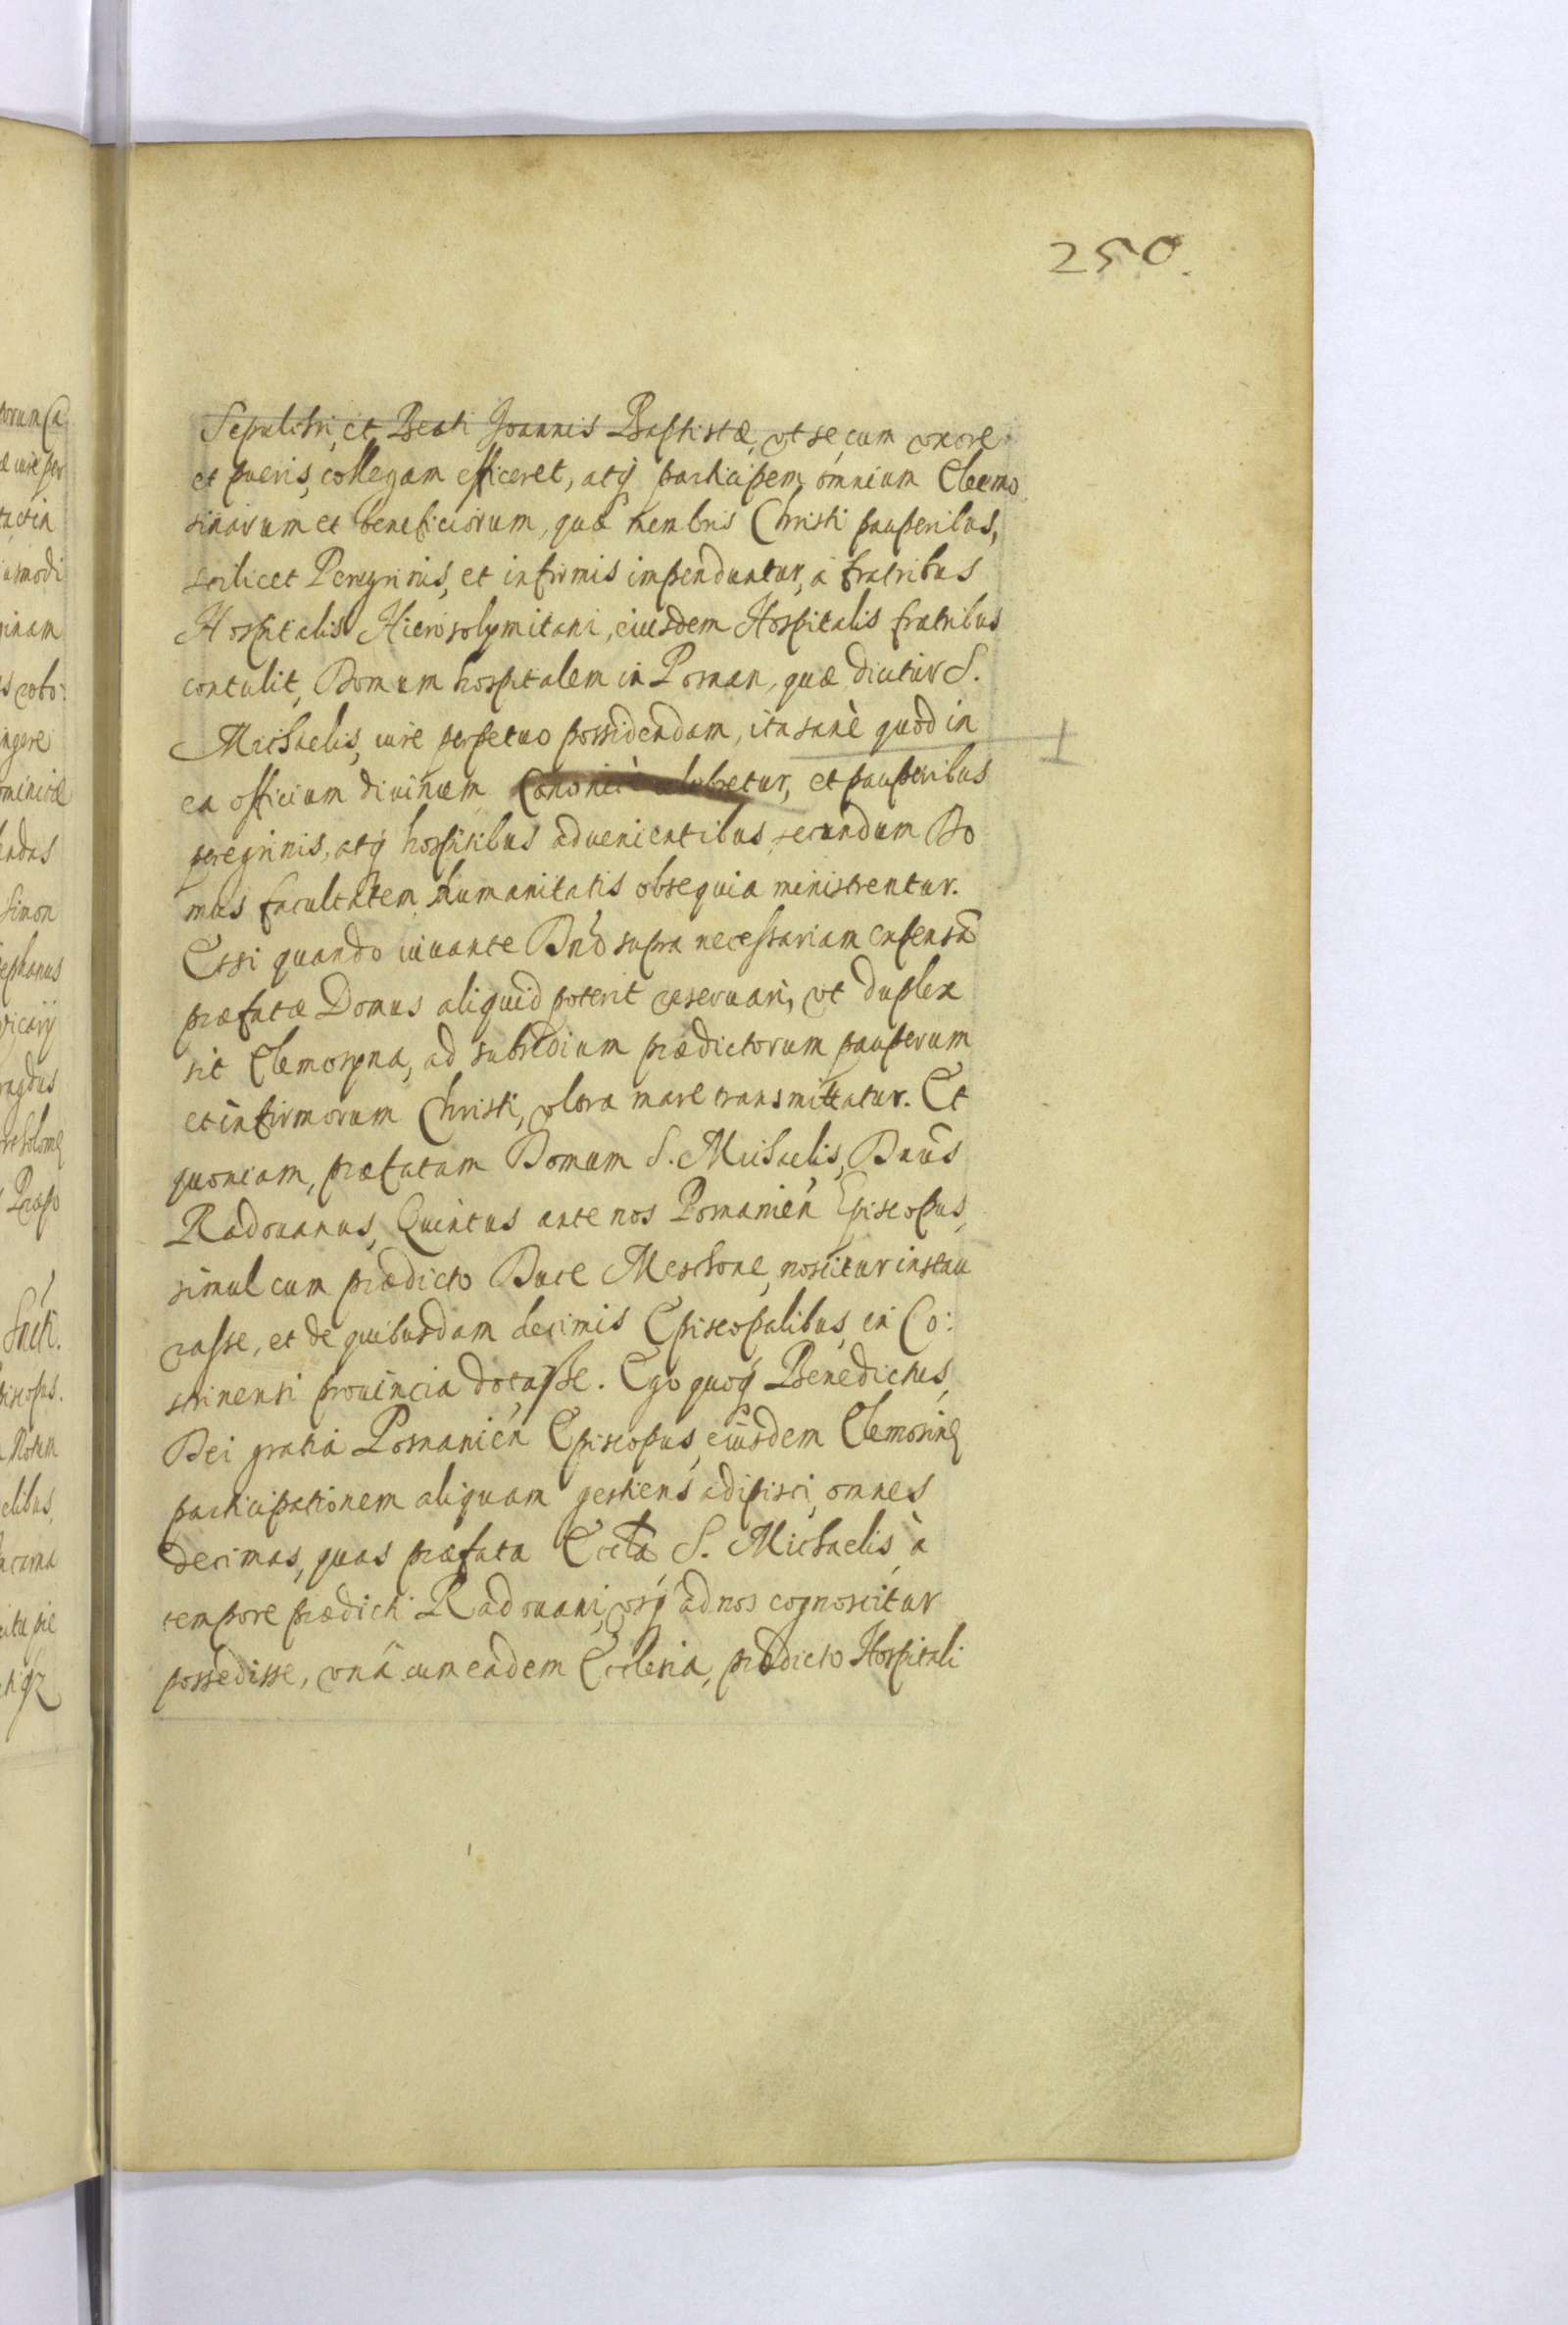 250.
Sepulchri, et Beati Joannis Baptistæ, vt se, cum vxore
et pueris, collegam efficeret, atq participem omnium Eleemo
sinarum et beneficiorum, quæ membris Christi pauperibus,
scilicet Peregrinis, et infirmis impenduntur, à fratribus
Hospitalis Hierosolymitani, eiusdem Hospitalis fratribus
contulit, Domum hospitalem in Posnan, quæ dicitur S.
Michaelis, iure perpetuo possidendam, ita sanè quod in
ea officium diuinum Canonicè celebretur, et pauperibus
peregrinis, atq hospitibus aduenientibus, secundum Do
mus facultatem, humanitatis obsequia ministrentur.
Et si quando iuuante Dno supra necessariam expensã
præfatæ Domus aliquid poterit reseruari, vt duplex
sit Elemosyna, ad subsidium prædictorum pauperum
et infirmorum Christi, vltra mare transmittatur. Et
quoniam, præfatam Domum S. Michaelis, Dnus
Radouanus, Quintus ante nos Posnanien Episcopus,
simul cum prædicto Duce Meschone, noscitur instau
rasse, et de quibusdam decimis Episcopalibus, in Co:
strinensi prouincia dotasse. Ego quoq Benedictus,
Dei gratia Posnanien Episcopus, eiusdem Elemosinę
participationem aliquam gestiens adipisci, omnes
decimas, quas præfata Eccla S. Michaelis, à
tempore prædicti Radouani, vsq ad nos cognoscitur
possedisse, vnâ cum eadem Ecclesia, prædicto Hospitali